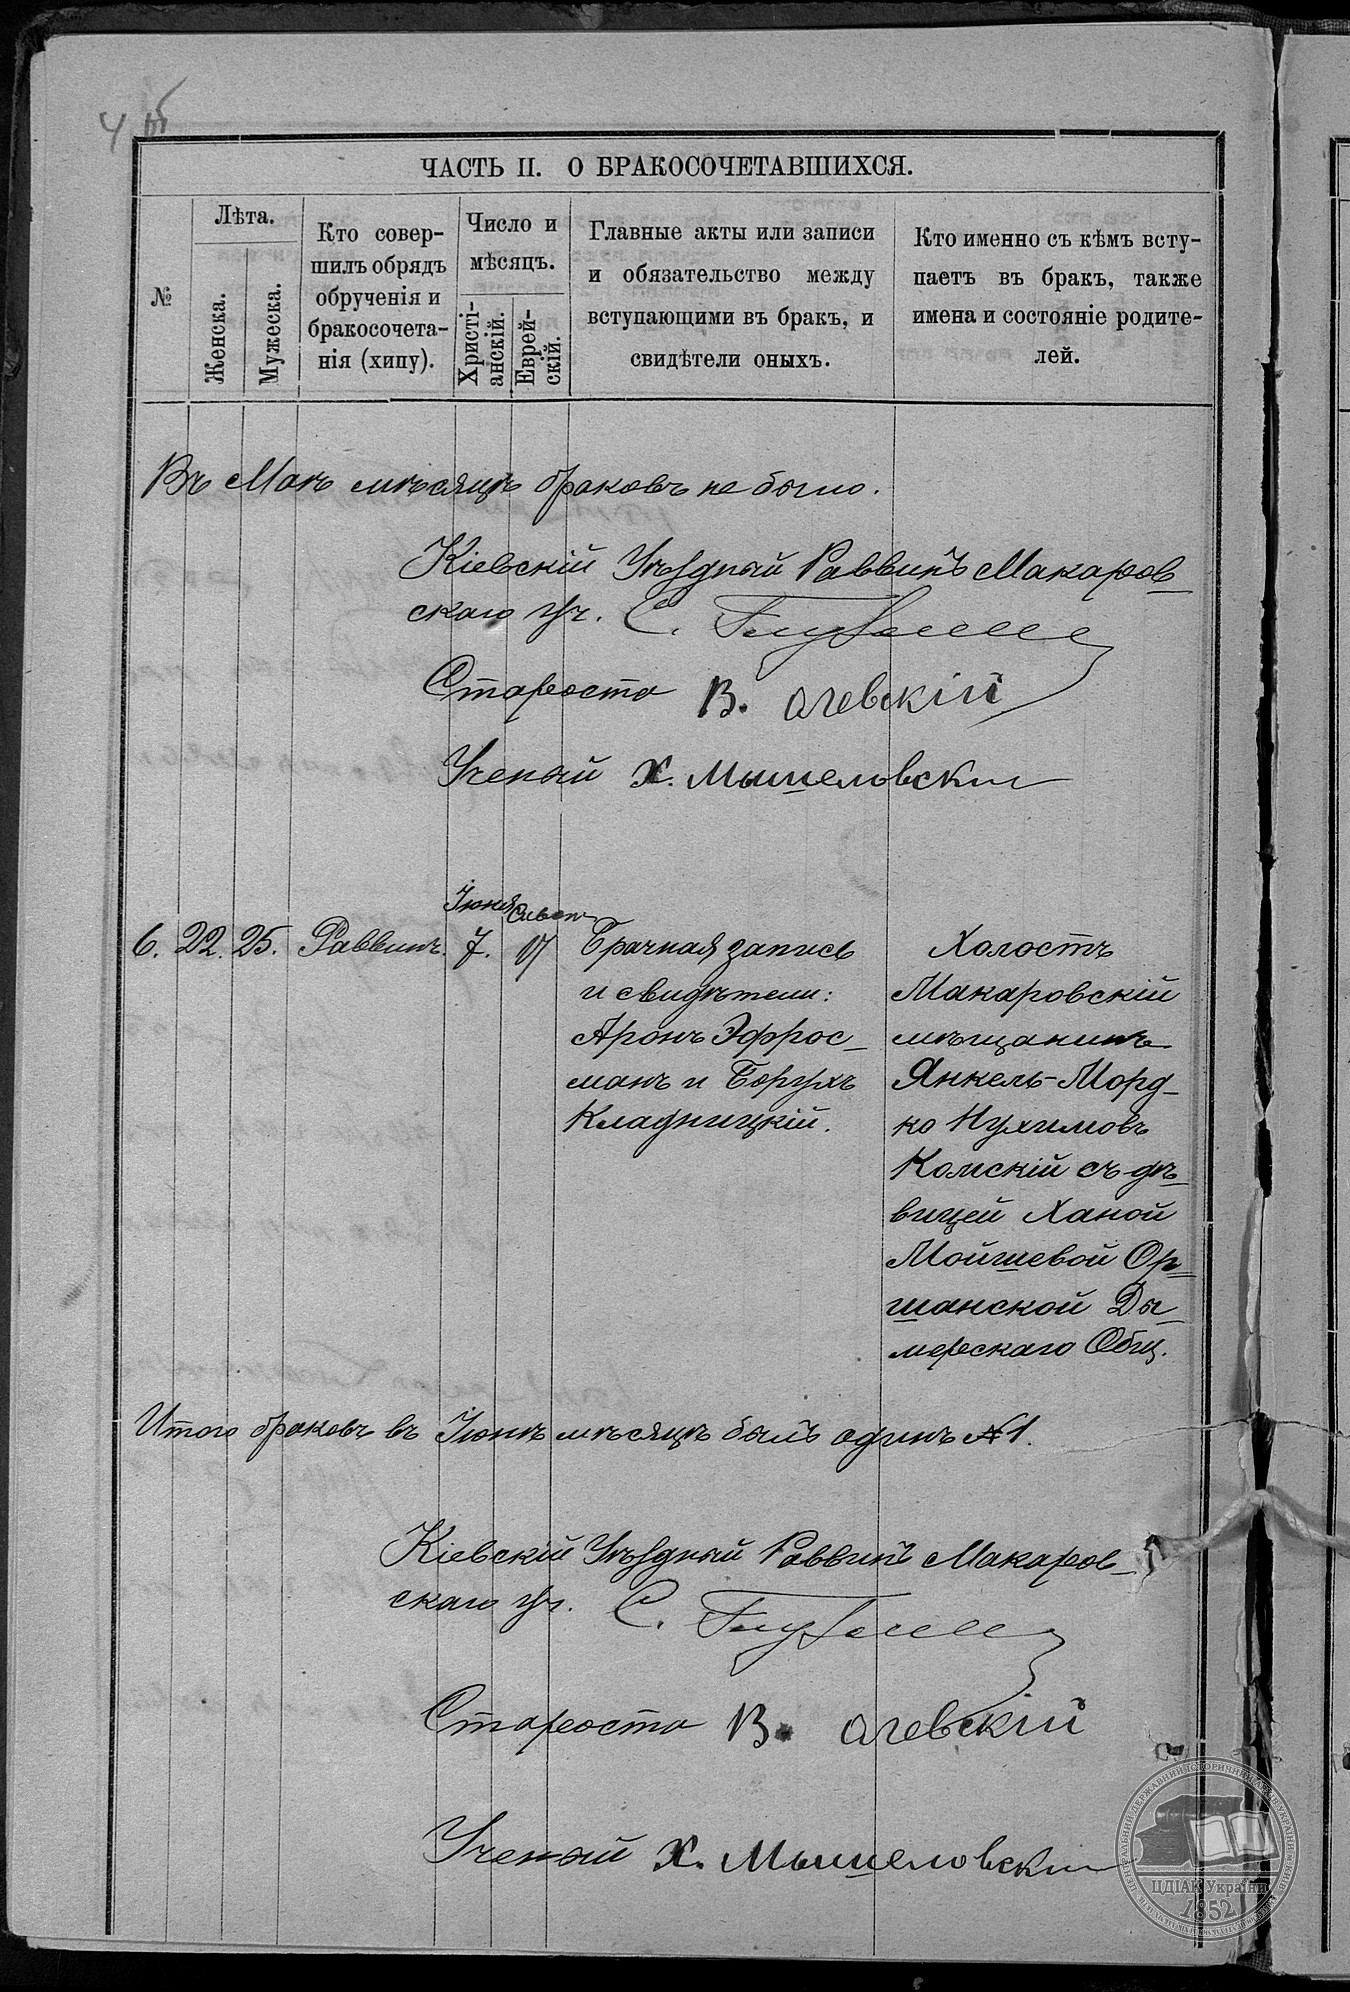 ЧАСТЬ II. О БРАКОСОЧЕТАВШИХСЯ.
№
Лѣта.
Женска.
Мужеска.
Кто совер-
шилъ обрядъ
обрученія и
бракосочета-
нія (хипу).
Число и
мѣсяцъ.
Христі-
анскій.
Еврей-
скій.
Главные акты или записи
и обязательство между
вступающими въ бракъ, и
свидѣтели оныхъ.
Кто именно съ кѣмъ всту-
паетъ въ бракъ, также
имена и состояніе родите-
лей.
Въ Маѣ мѣсяцѣ браковъ не было.
Кіевскій Уѣздный Раввинъ Макаров-
скаго уч. С.
Староста В. Олевскій
Ученый Х. Мышеловски
Іюня Сивон
6. 22. 25. Раввинъ. 7.
Брачная запись
и свидѣтели:
Аронъ Эфрос-
манъ и Борухъ
Кладницкій.
Холостъ
Макаровскій
мѣщанинъ
Янкель-Морд-
ко Нухимовъ
Комскій съ дѣ-
вицей Ханой
Мойшевой Ор-
шанской Ды-
мерскаго Общ.
Итого браковъ въ Іюнѣ мѣсяцѣ былъ одинъ №1.
Кіевскій Уѣздный Раввинъ Макаров-
скаго уч. С.
Староста В. Олевскій
Ученый Х. Мышеловски
ЦЕНТРАЛЬНИЙ ДЕРЖАВНИЙ ІСТОРИЧНИЙ АРХІВ УКРАЇНИ
ЦДІАК України
1852